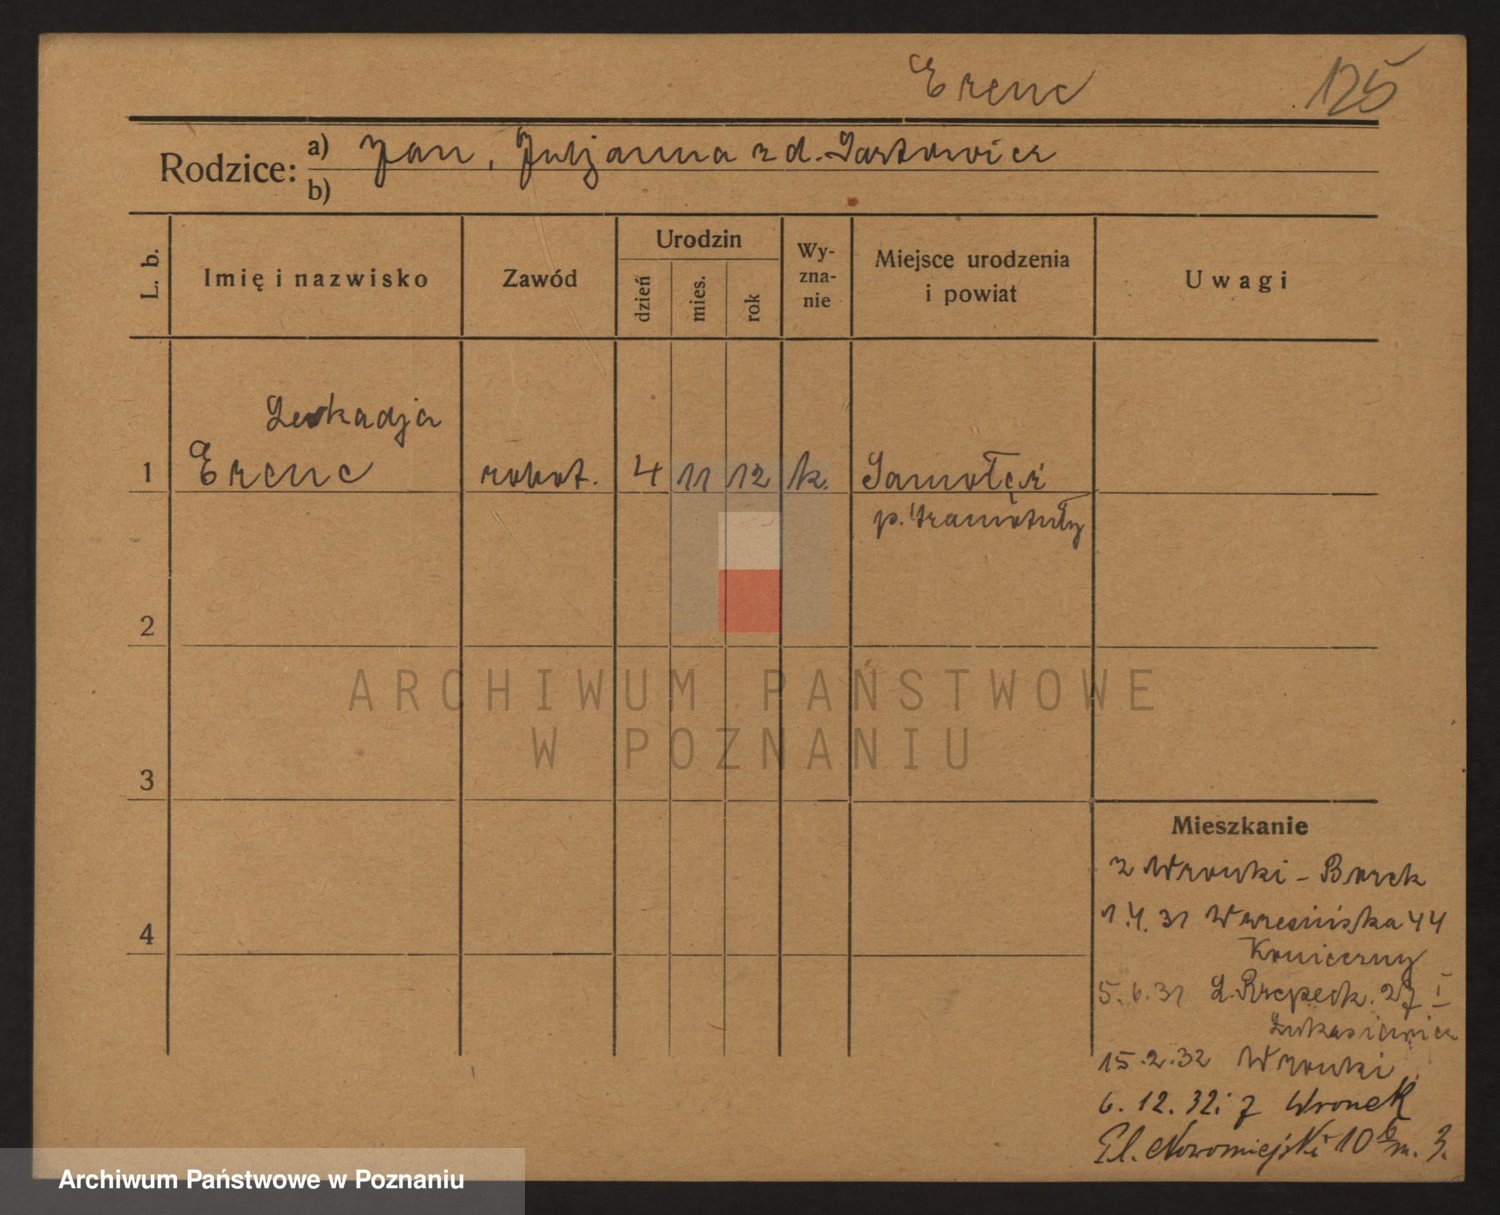 Erenc 125
Rodzice: a) Jan, Juljanna z d. Jartowicz
b)
L. b. Imię i nazwisko Zawód Urodzin dzień mies. rok Wy-zna-nie Miejsce urodzenia i powiat Uwagi
Leokadja
1 Erenc robot. 4 11 12 k.
p. Szamotuły
2
ARCHIWUM PAŃSTWOWE
W POZNANIU
3
Mieszkanie
z Wronki - Borek
1.4.31 Wrzesińska 44
4
Konieczny
5.6.31 27 I
Łukasiewicz
15.2.32 Wronki
6.12.32: z Wronek
Pl. Nowomiejski 10 m. 3.
Archiwum Państwowe w Poznaniu